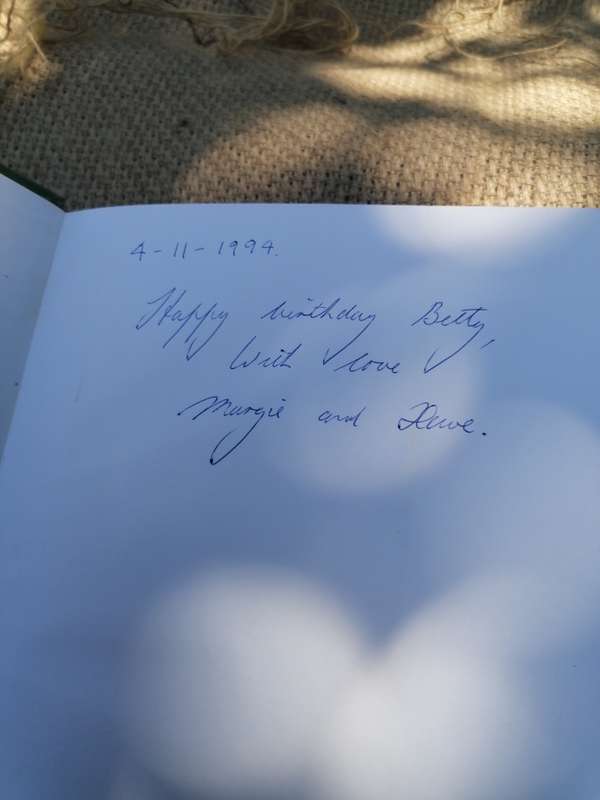 4-11-1994.
Happy birthday Betty,
With love
Margie and Dave.